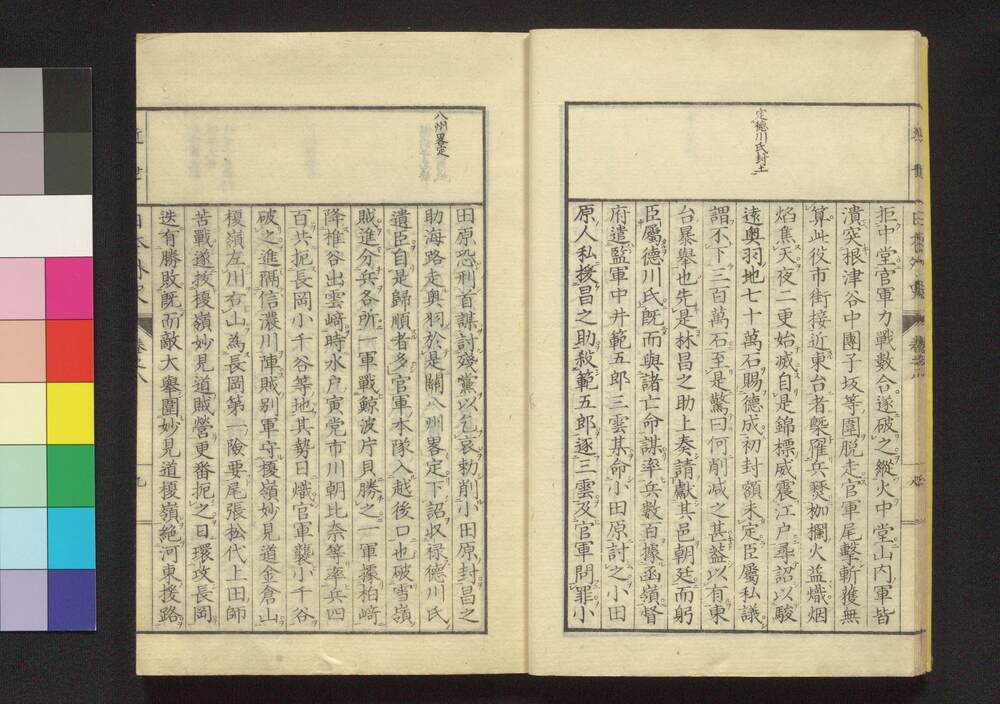 定德川氏封土
拒中堂官軍力戰數合遂破之縱火中堂山内軍皆
潰突根津谷中團子坂等圍脫走官軍尾擊斬獲無
算此役市街接近東台者槩罹兵燹枷攔火益熾烟
焰焦天夜二更始滅自是錦標威震江戶尋詔以駿
遠奧羽地七十萬石賜德成初封額未定臣屬私議
謂不下三百萬石至是驚曰何削減之甚葢以有東
台暴舉也先是林昌之助上奏請獻其邑朝廷而躬
臣屬德川氏既而與諸亡命謀率兵數百據函嶺督
府遣監軍中井範五郎三雲某命小田原討之小田
原人私援昌之助殺範五郎逐三雲及官軍問罪小
八州畧定
田原恐刑首謀討殘黨以乞哀勅削小田原封昌之
助海路走奧羽於是關八州畧定下詔収祿德川氏
遺臣自是歸順者多官軍本隊入越後口也破雪嶺
賊進分兵各所一軍戰鯨波片貝勝之一軍據柏崎
降椎谷出雲崎時水戶寅党市川朝比奈等率兵四
百共扼長岡小千谷等地其勢日熾官軍襲小千谷
破之進隔信濃川陣賊别軍守榎嶺妙見道金倉山
榎嶺左川右山為長岡第一險要尾張松代上田師
苦戰遂拔榎嶺妙見道賊營更番扼之日環攻長岡
迭有勝敗既而敵大舉圍妙見道榎嶺絶河東援路
近世日本外史 卷之八 九